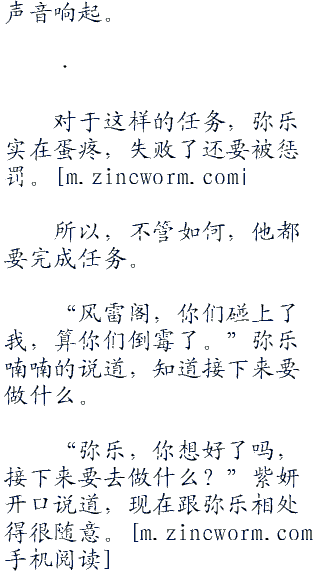 声音响起。
.
对于这样的任务，弥乐
实在蛋疼，失败了还要被惩
罚。[m.zincworm.com]
所以，不管如何，他都
要完成任务。
“风雷阁，你们碰上了
我，算你们倒霉了。”弥乐
喃喃的说道，知道接下来要
做什么。
“弥乐，你想好了吗，
接下来要去做什么？”紫妍
开口说道，现在跟弥乐相处
得很随意。[m.zincworm.com
手机阅读]